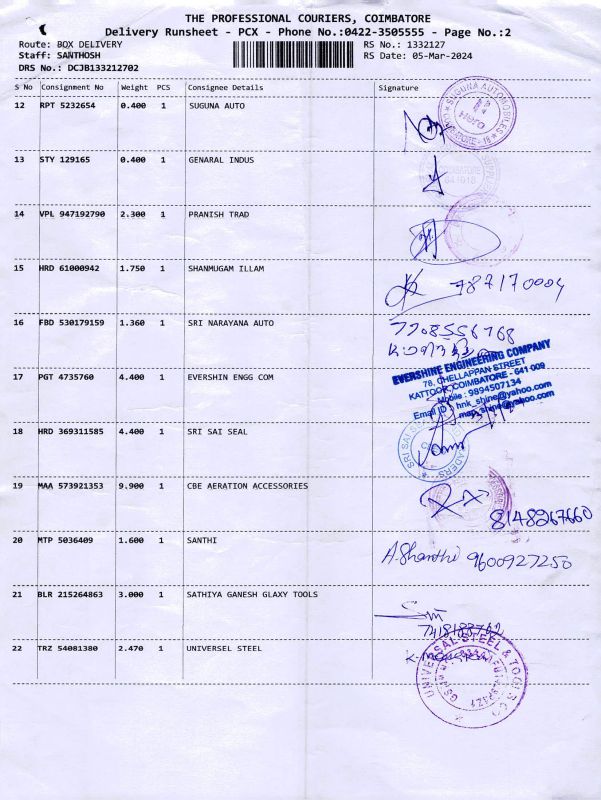 THE PROFESSIONAL COURIERS, COIMBATORE
Delivery Runsheet - PCX - Phone No.:0422-3505555 - Page No.:2
Route: BOX DELIVERY RS No.: 1332127
Staff: SANTHOSH RS Date: 05-Mar-2024
DRS No.: DCJB133212702
S No Consignment No Weight PCS Consignee Details Signature
12 RPT 5232654 0.400 1 SUGUNA AUTO
SUGUNA AUTOMOBILES
13 STY 129165 0.400 1 GENARAL INDUS
14 VPL 947192790 2.300 1 PRANISH TRAD
15 HRD 61000942 1.750 1 SHANMUGAM ILLAM
787170004
16 FBD 530179159 1.360 1 SRI NARAYANA AUTO
7708556768
EVERSHINE ENGINEERING COMPANY
78, CHELLAPPAN STREET
KATTOOR, COIMBATORE - 641 009
17 PGT 4735760 4.400 1 EVERSHIN ENGG COM
Mobile : 9894507134
Email ID : hnk_shine@yahoo.com
map_shine@yahoo.com
18 HRD 369311585 4.400 1 SRI SAI SEAL
SRI SAI
19 MAA 573921353 9.900 1 CBE AERATION ACCESSORIES
8148267660
20 MTP 5036409 1.600 1 SANTHI
A.Shanthi 9600927250
21 BLR 215264863 3.000 1 SATHIYA GANESH GLAXY TOOLS
22 TRZ 54081380 2.470 1 UNIVERSEL STEEL
UNIVERSAL STEEL & TOOLS